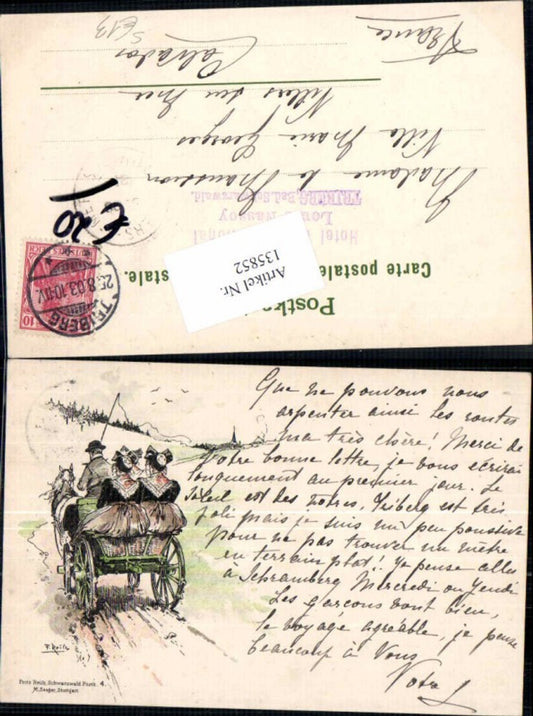 France
5613
Calvados
Villers sur Mer
Villa Marie Georges
Madame de
TRIBERG, Bad. Schwarzwald.
Louis Nassoy
Hotel
Carte postale
stale.
Postk
€ 20
Artikel Nr.
135852
TRIBERG
25.8.03.10-11V.
10
Que ne pouvons nous
arpenter ainsi les routes
ma très chère! Merci de
votre bonne lettre, je vous écrirai
longuement au premier jour. Le
soleil est des nôtres, Triberg est très
joli mais je suis un peu poussive
pour ne pas trouver un mètre
en terrain plat! Je pense aller
à Schramberg Mercredi ou Jeudi
Les garçons vont bien,
le voyage agréable, je pense
beaucoup à vous
Votre
F. Reiß
Fritz Reiß, Schwarzwald Postk. 4.
M. Seeger, Stuttgart.